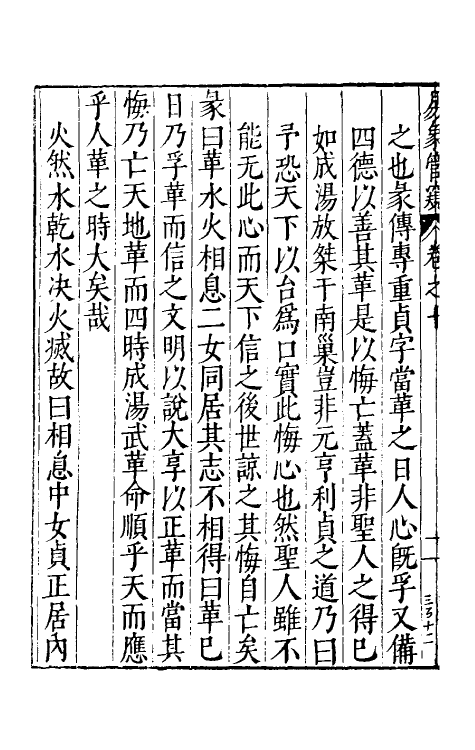 易象管窺 卷之十 十一 三百十二
之也彖傳專重貞字當革之日人心旣孚又備
四德以善其革是以悔亡蓋革非聖人之得已
如成湯放桀于南巢豈非元亨利貞之道乃曰
予恐天下以台爲口實此悔心也然聖人雖不
能无此心而天下信之後世諒之其悔自亡矣
彖曰革水火相息二女同居其志不相得曰革巳
日乃孚革而信之文明以說大享以正革而當其
悔乃亡天地革而四時成湯武革命順乎天而應
乎人革之時大矣哉
火然水乾水决火滅故曰相息中女貞正居內